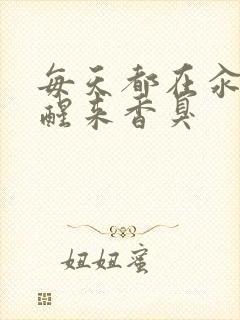 每天都在汆
醒来香臭
妞妞蜜